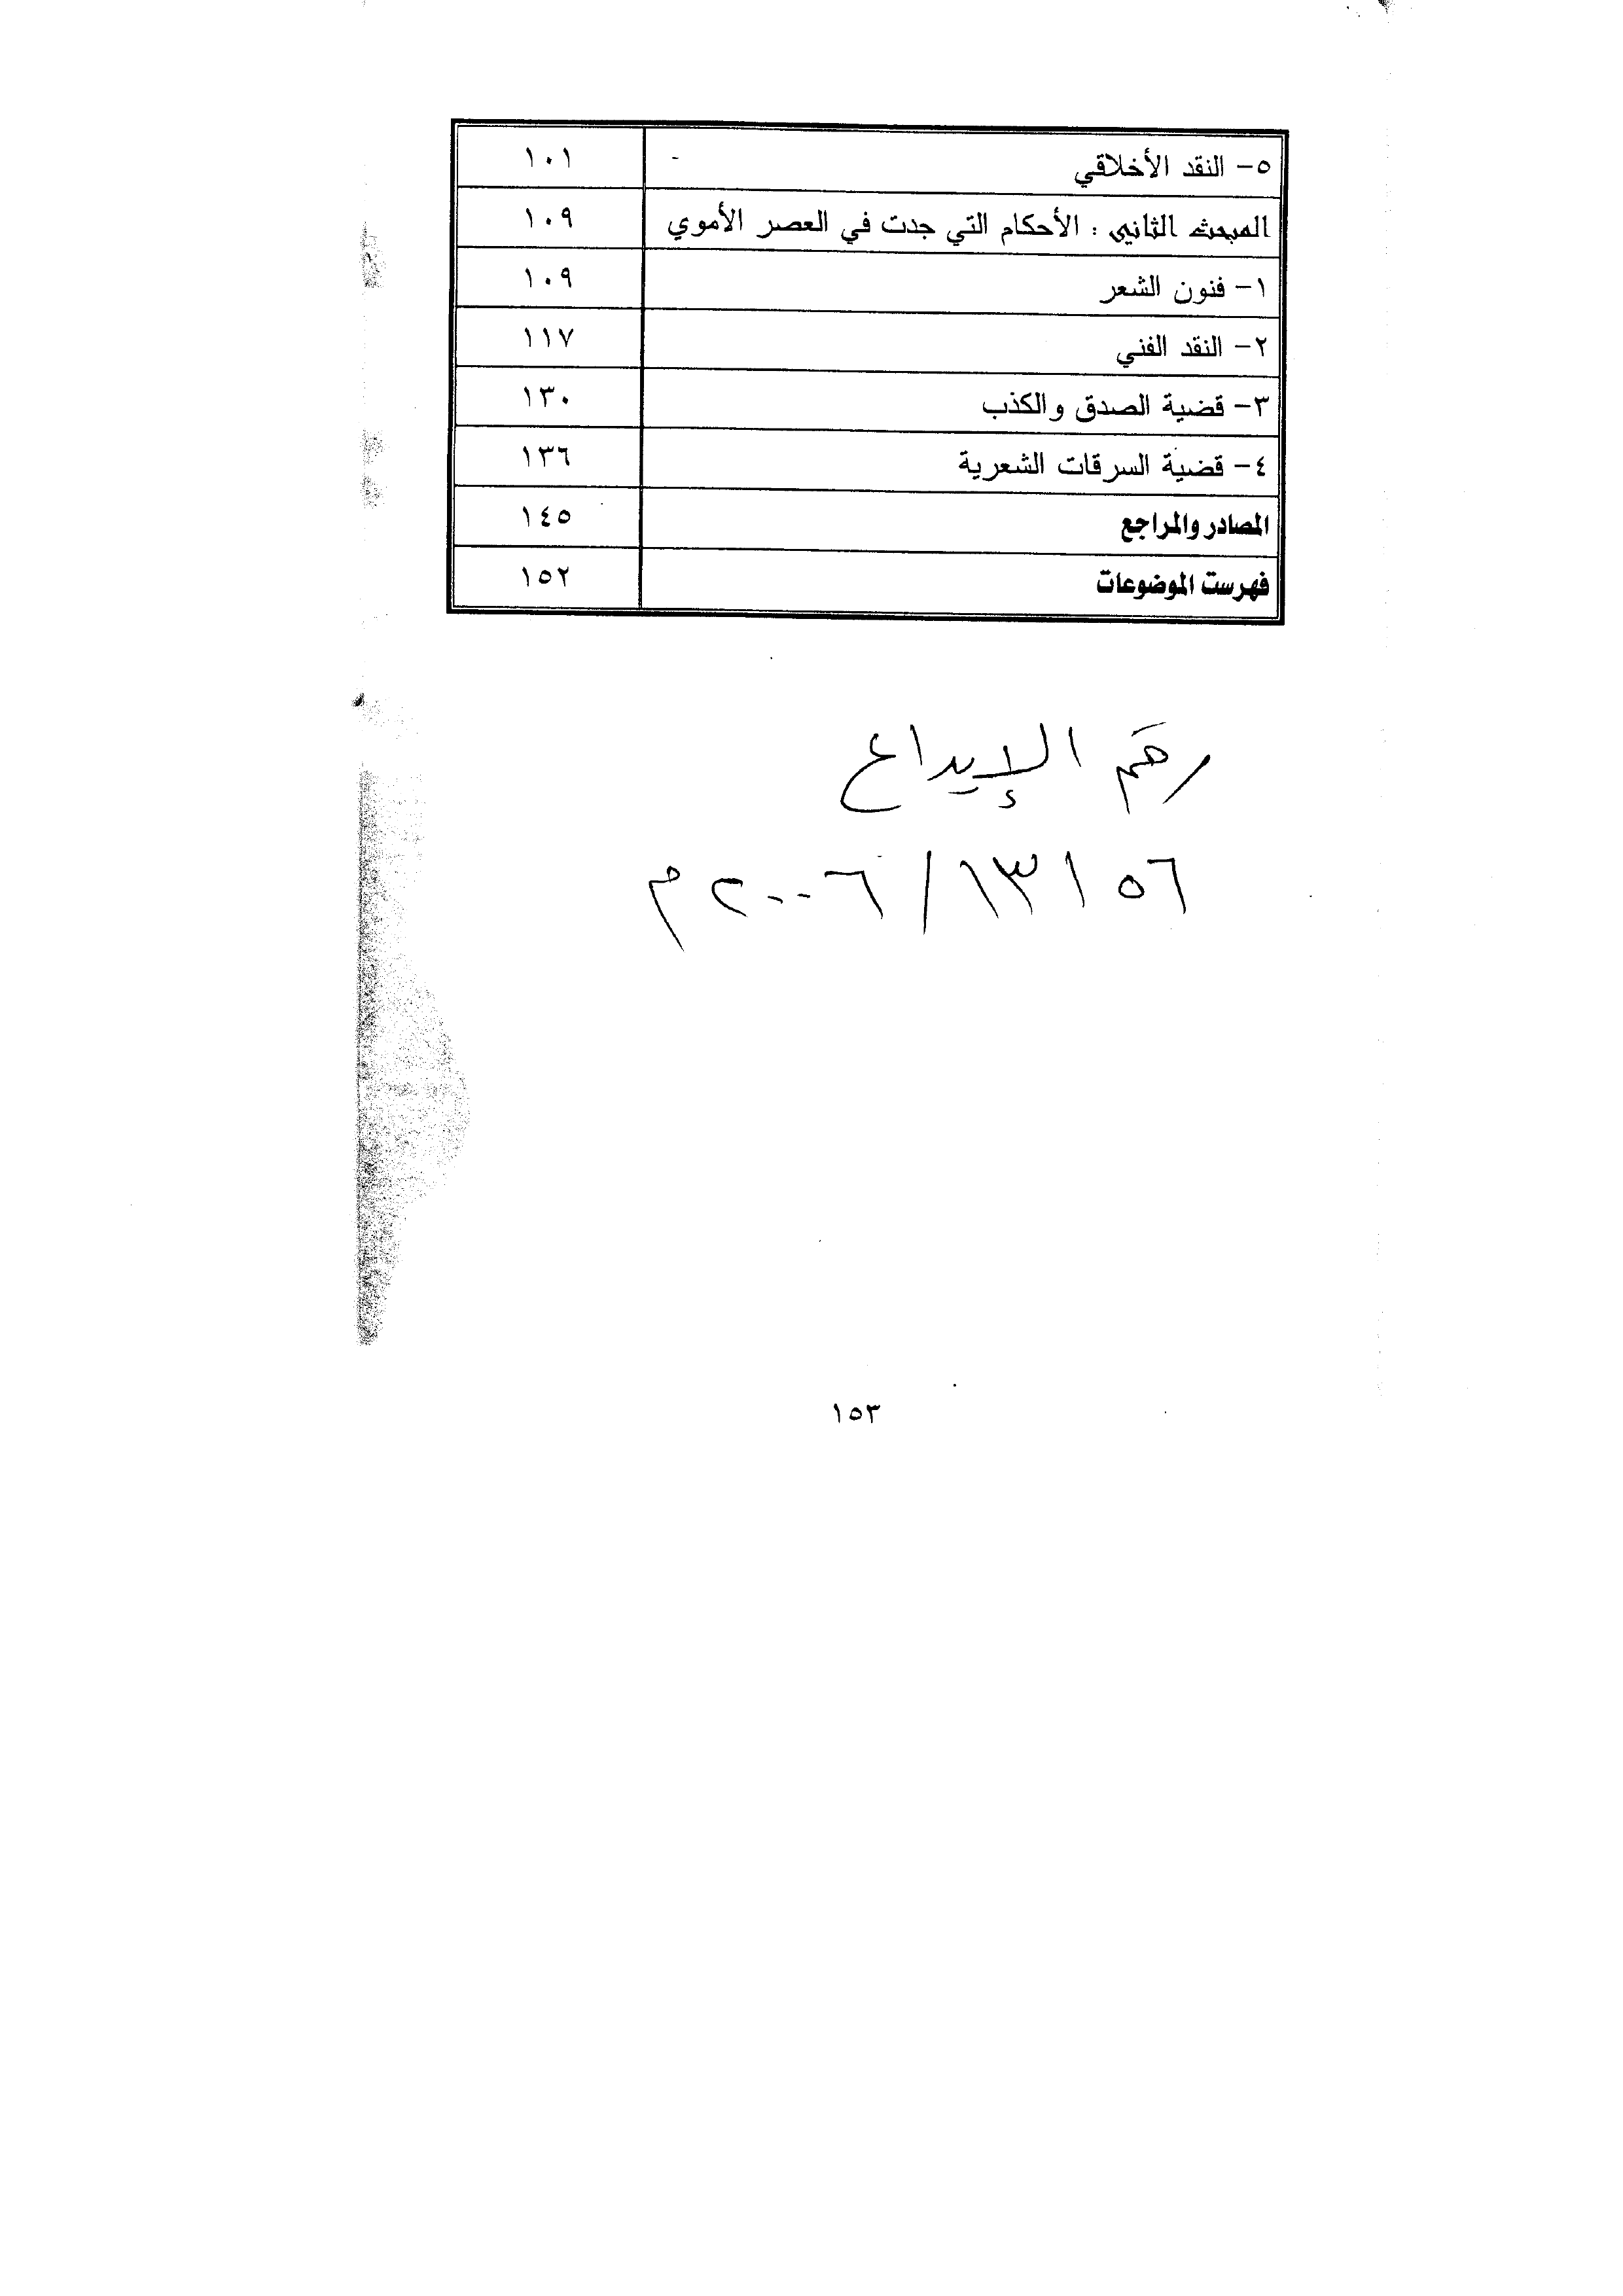 ٥- النقد الأخلاقي ١٠١
المبحث الثاني : الأحكام التي جدت في العصر الأموي ١٠٩
١- فنون الشعر ١٠٩
٢- النقد الفني ١١٧
٣- قضية الصدق والكذب ١٣٠
٤- قضية السرقات الشعرية ١٣٦
المصادر والمراجع ١٤٥
فهرست الموضوعات ١٥٢
رقم الإيداع
١٣١٥٦ / ٢٠٠٦م
١٥٣